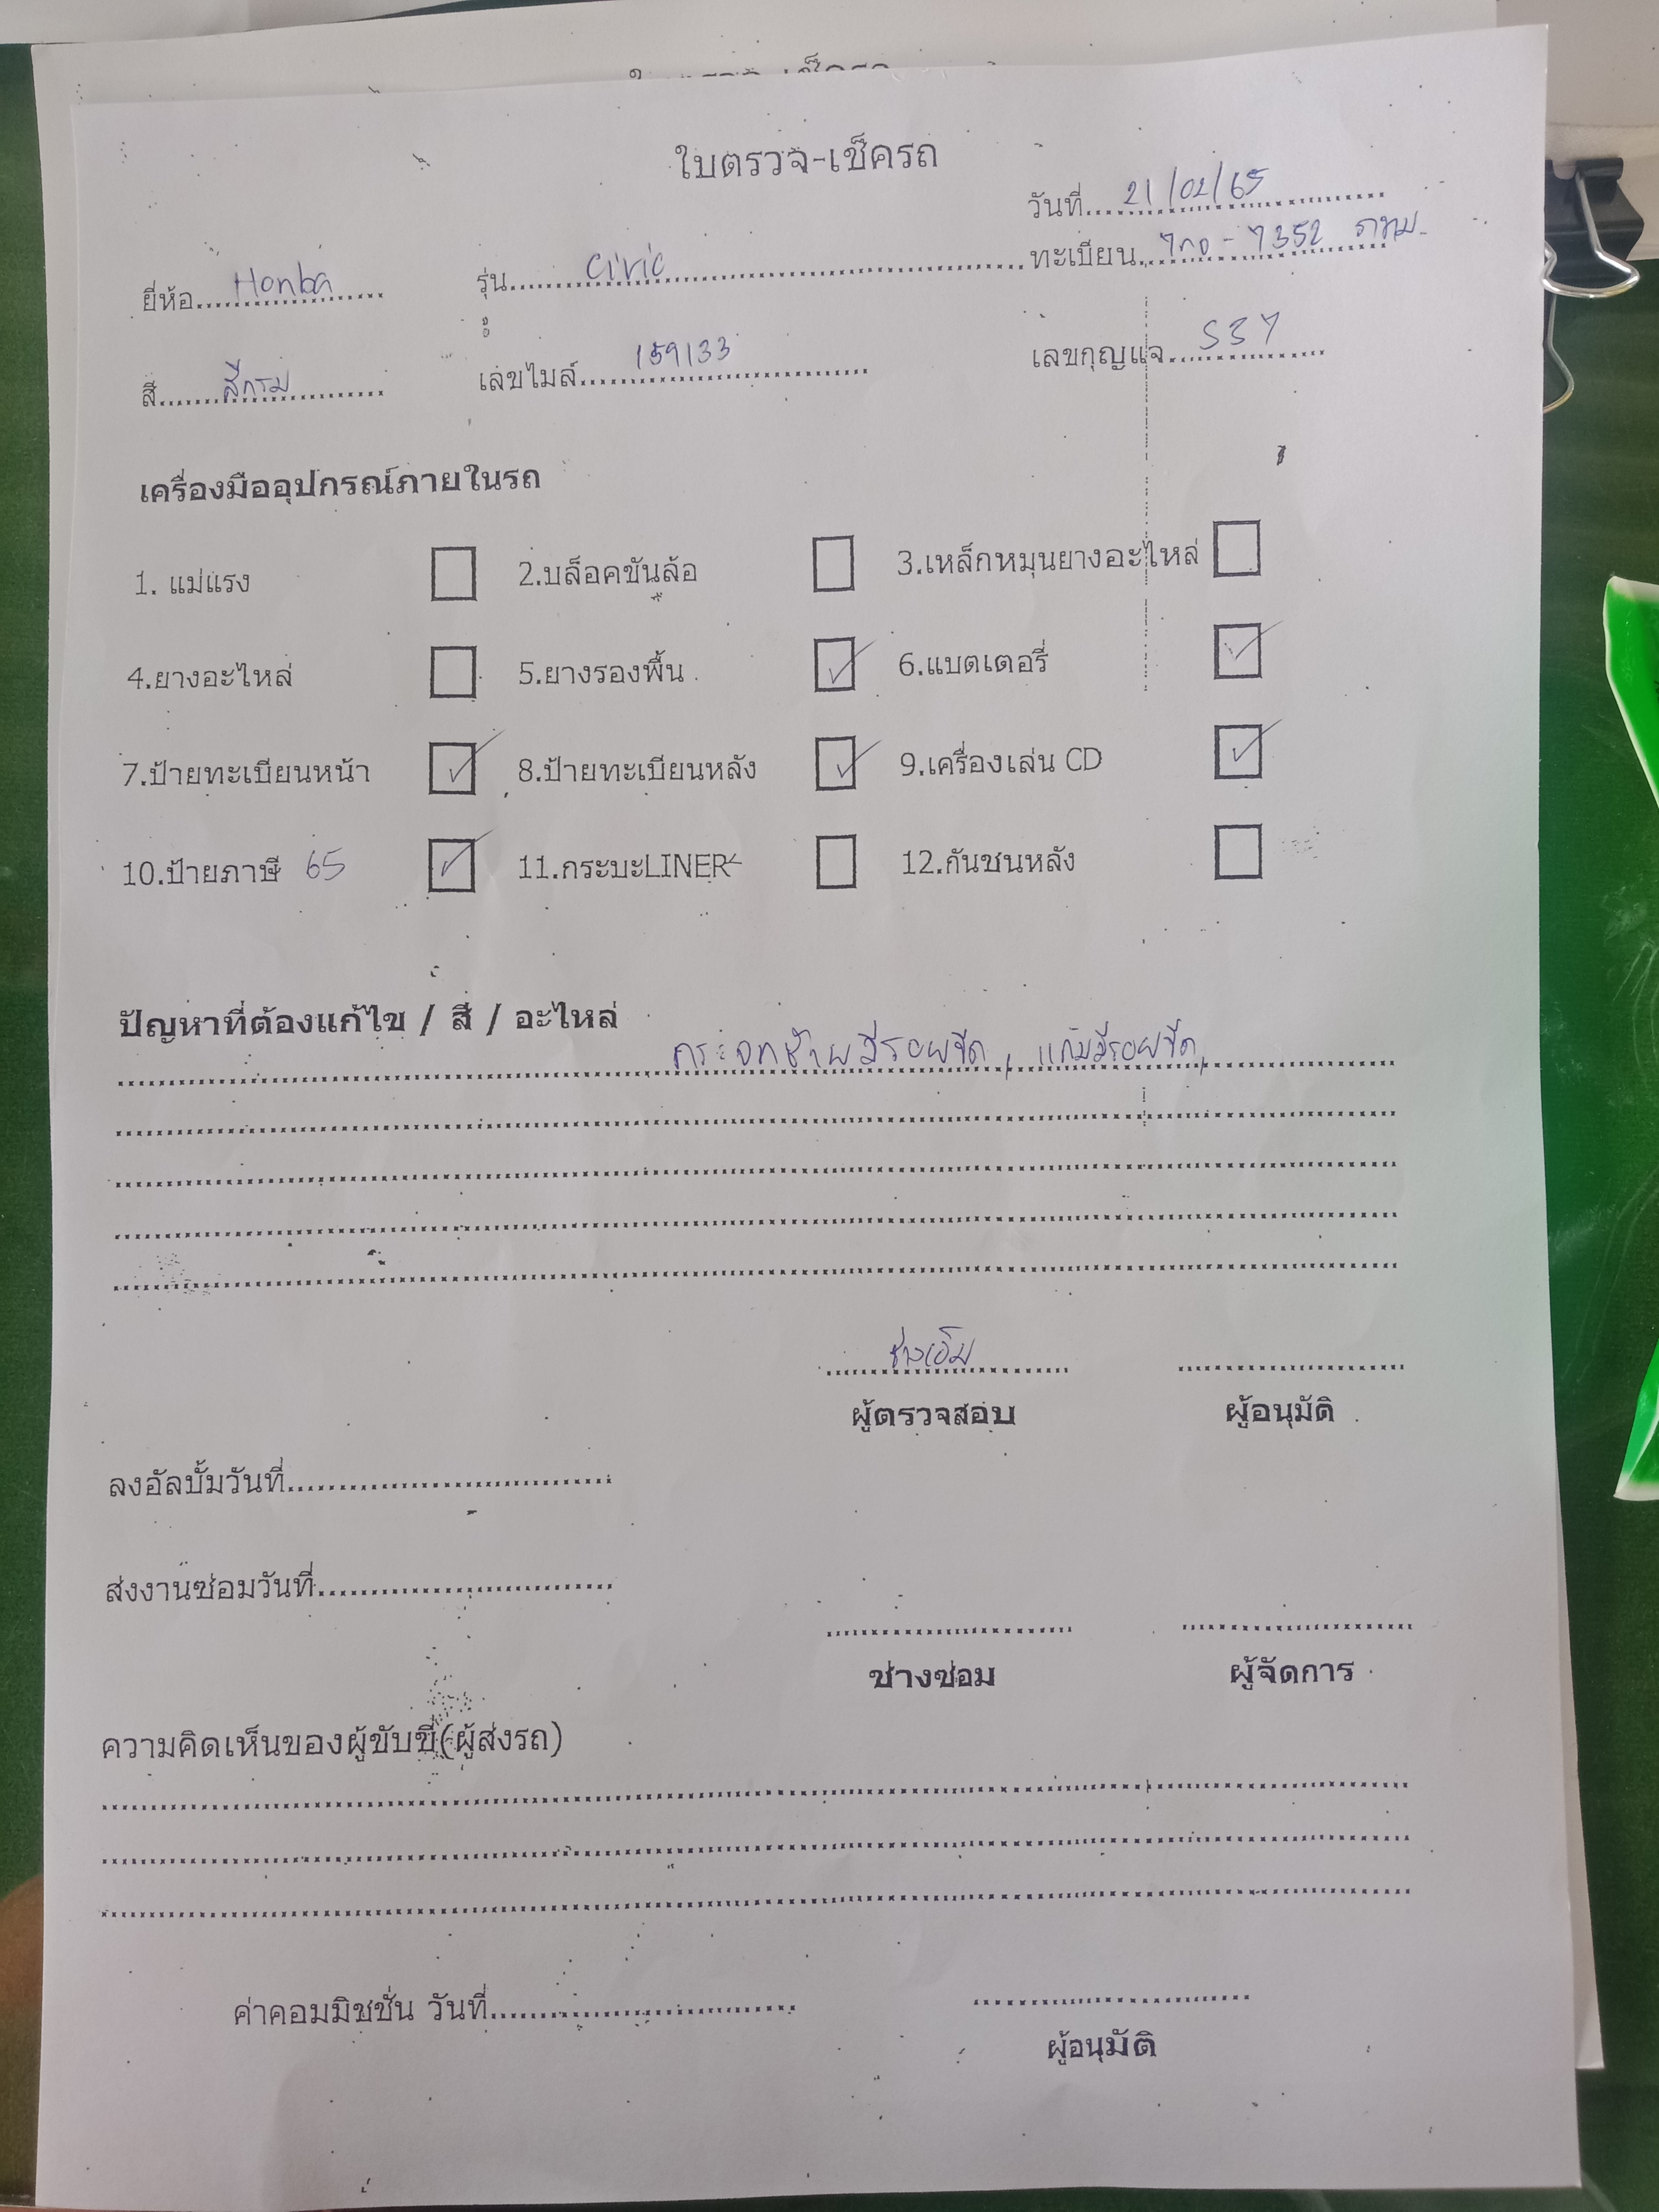 ใบตรวจ-เช็ครถ
วันที่ 21/02/65
ยี่ห้อ Honba รุ่น Civic ทะเบียน 7กอ-7352 กทม.
สี สีกรม เลขไมล์ 159133 เลขกุญแจ 537
เครื่องมืออุปกรณ์ภายในรถ
1. แม่แรง 2.บล็อคขันล้อ 3.เหล็กหมุนยางอะไหล่
4.ยางอะไหล่ 5.ยางรองพื้น 6.แบตเตอรี่
7.ป้ายทะเบียนหน้า 8.ป้ายทะเบียนหลัง 9.เครื่องเล่น CD
10.ป้ายภาษี 65 11.กระบะLINER 12.กันชนหลัง
ปัญหาที่ต้องแก้ไข / สี / อะไหล่
กระจกซ้ายมีรอยขีด, แก้มมีรอยขีด,
ช่างเอ็ม
ผู้ตรวจสอบ ผู้อนุมัติ
ลงอัลบั้มวันที่
ส่งงานซ่อมวันที่
ช่างซ่อม ผู้จัดการ
ความคิดเห็นของผู้ขับขี่(ผู้ส่งรถ)
ค่าคอมมิชชั่น วันที่
ผู้อนุมัติ